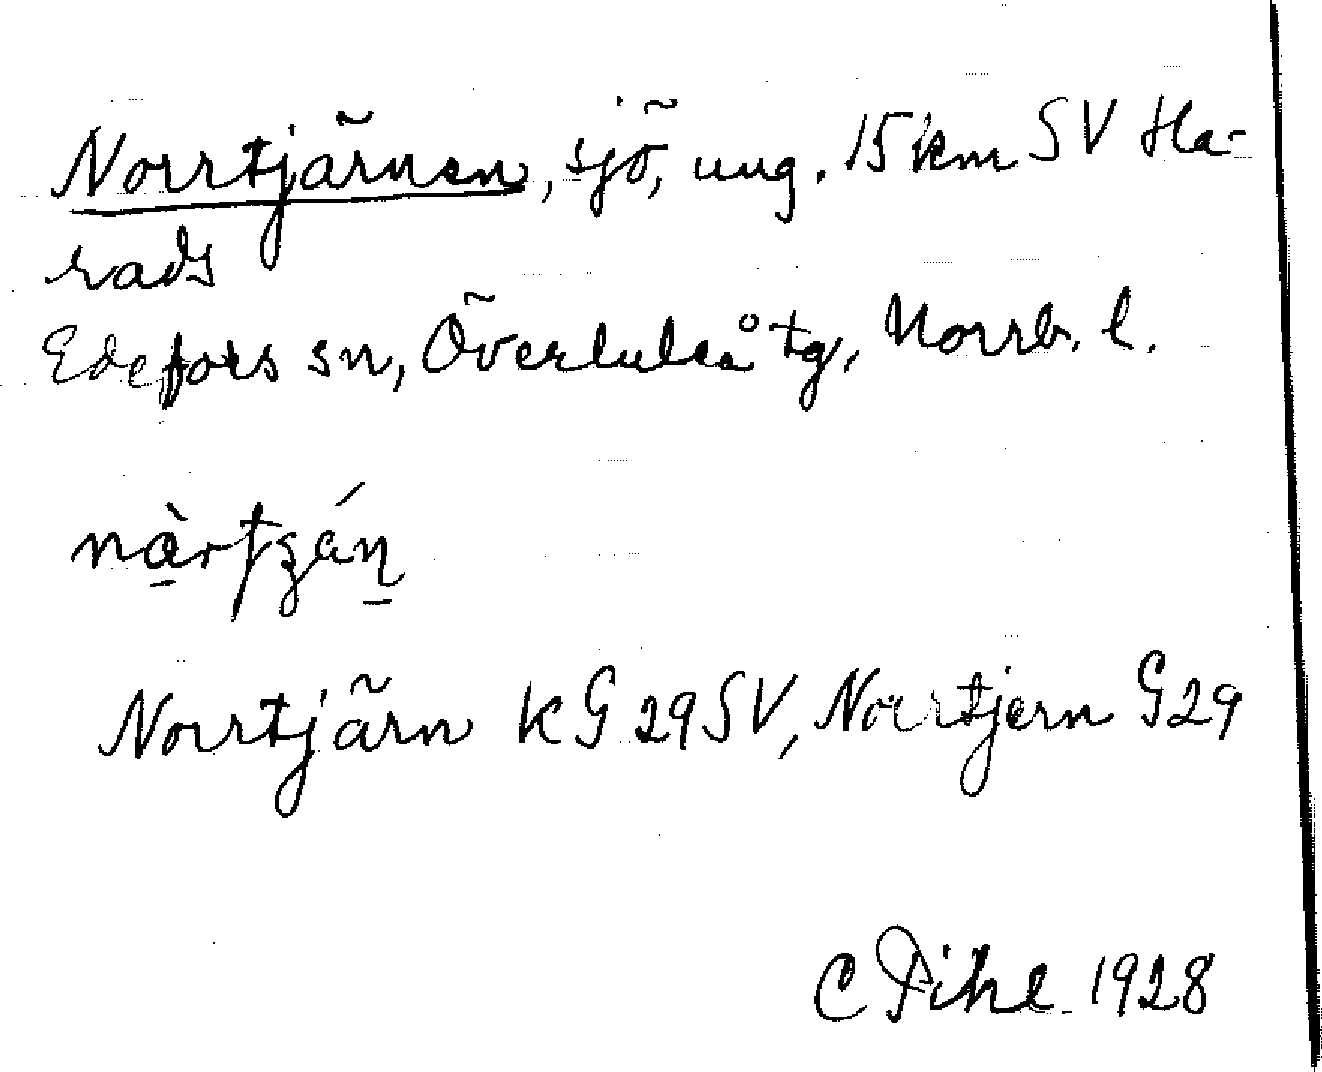 Norrtjärnen, sjö, ung. 15 km SV Ha-
rads
Edefors sn, Överluleå tg, Norrb. l.
Norrtjärn kG 29 SV, Norrtjern G 29
C Pihl 1928